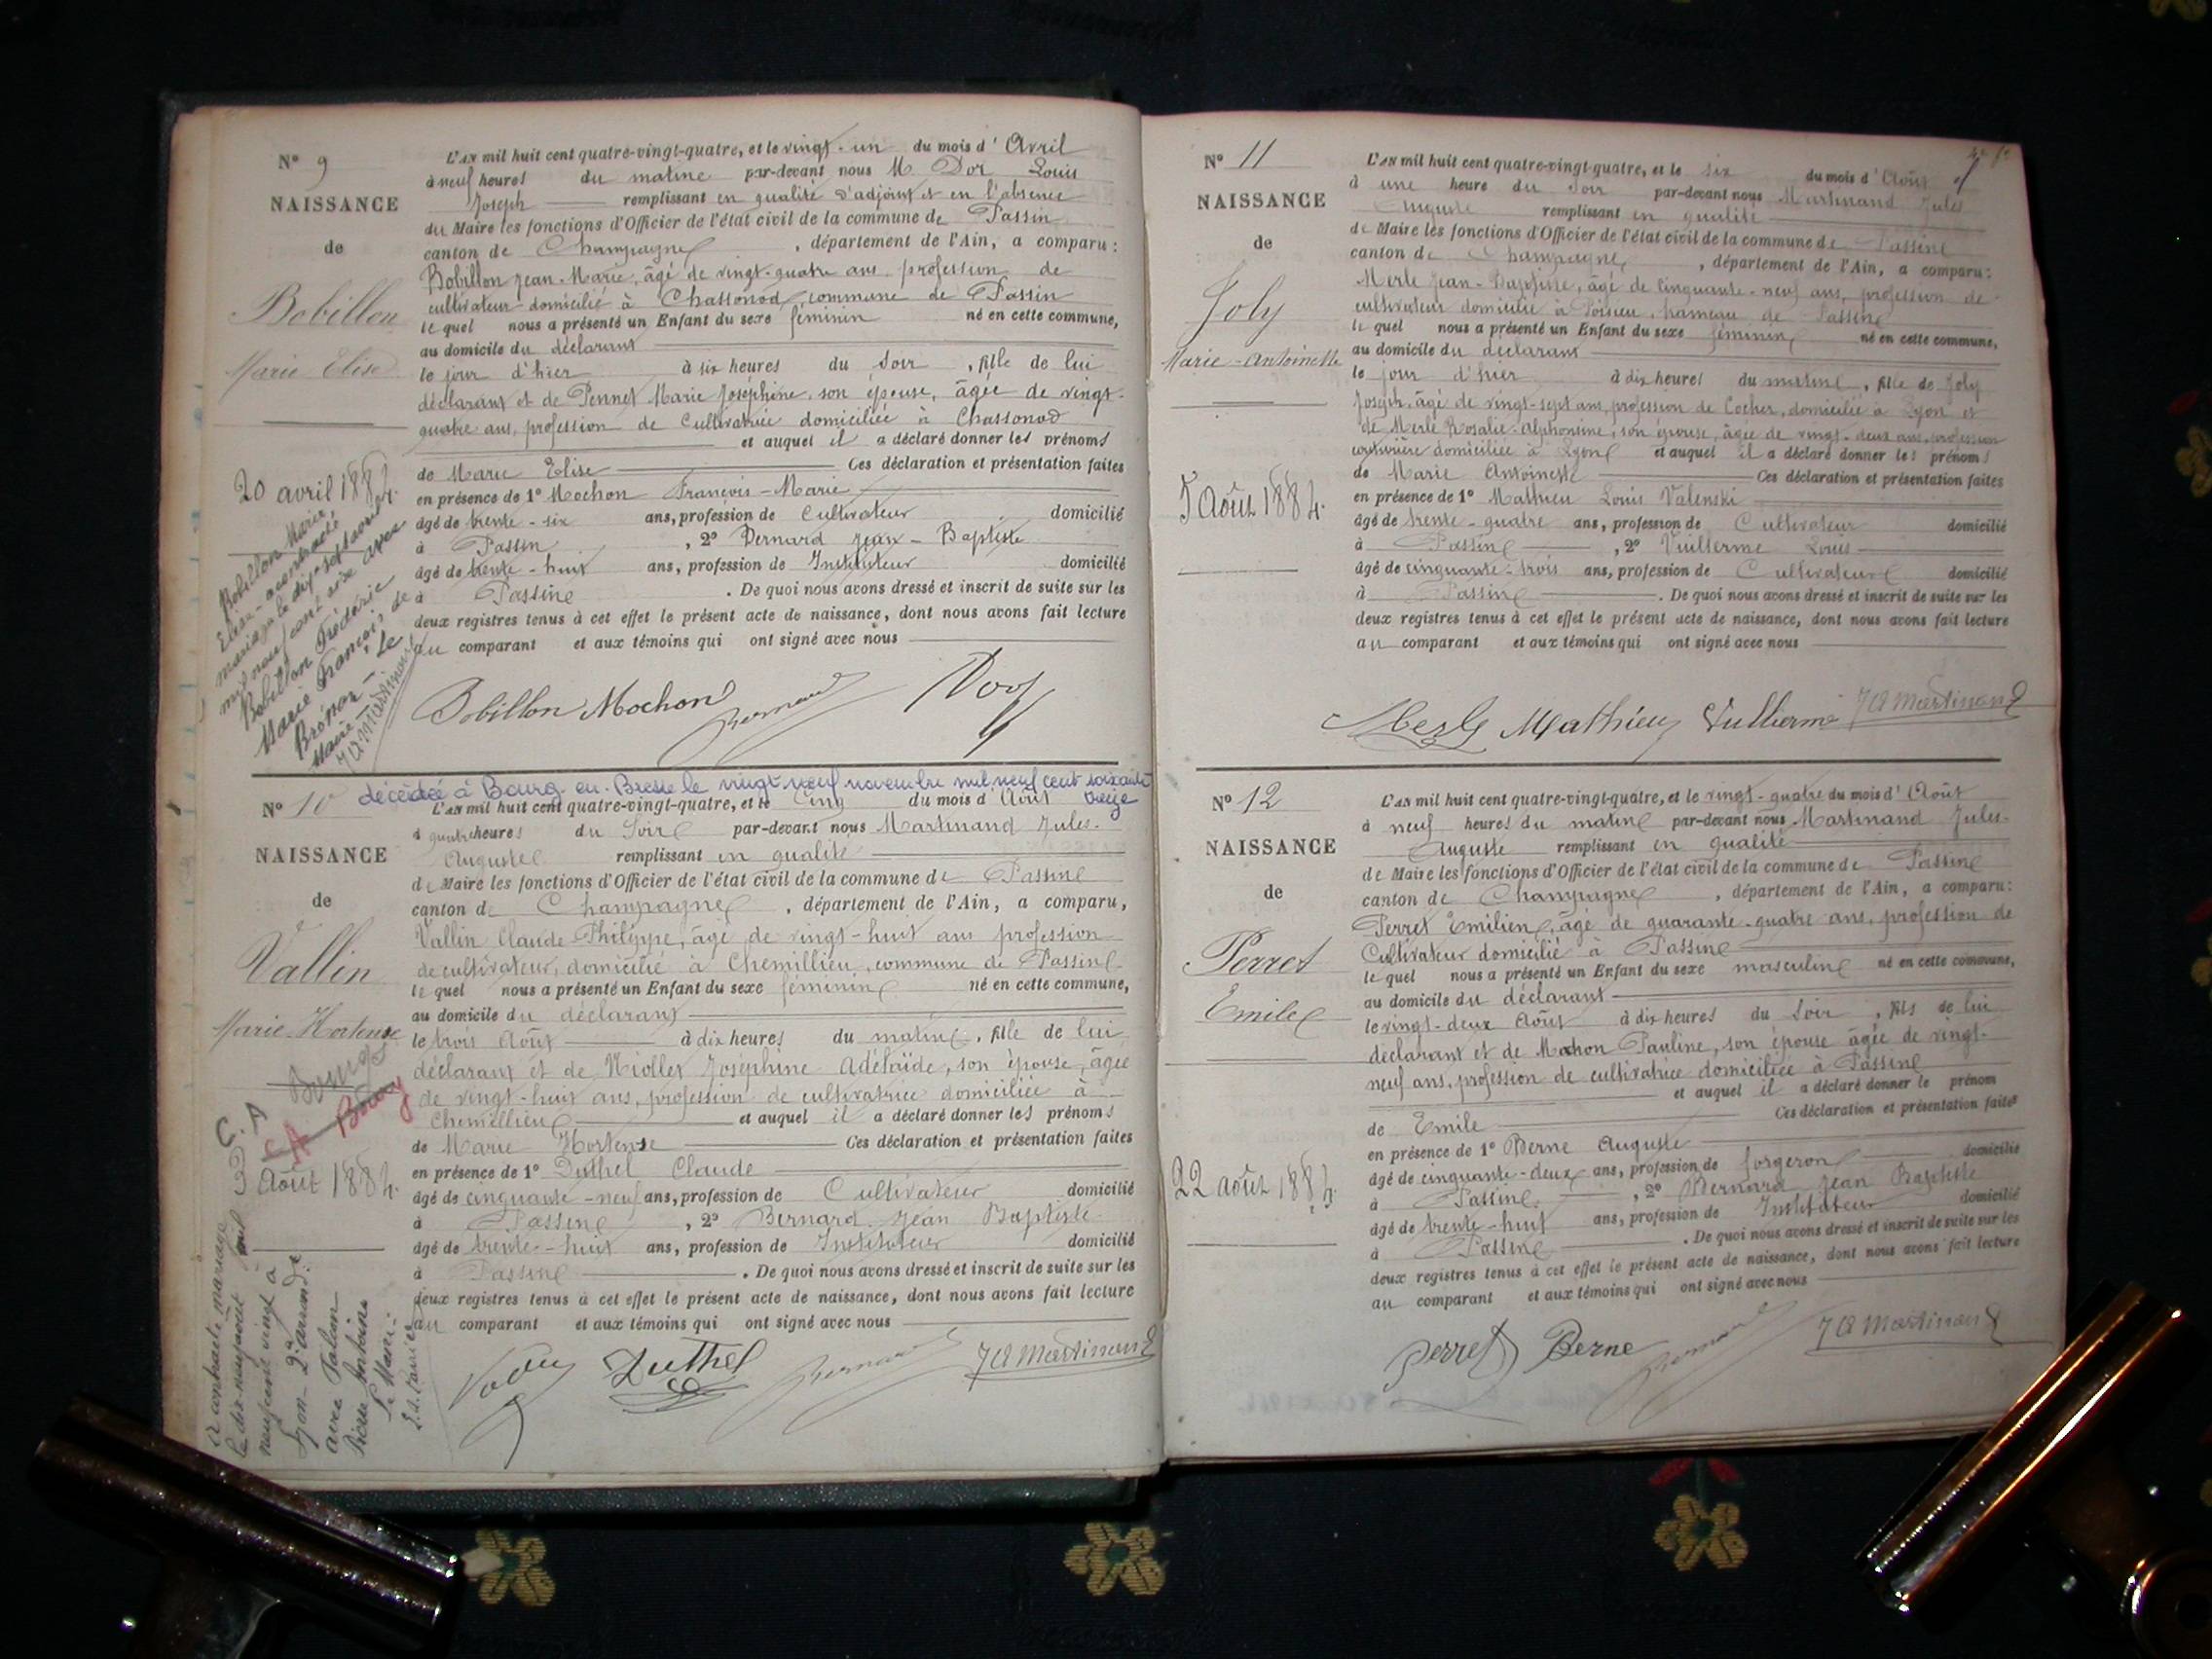 N° 9
NAISSANCE
de
Bobillon
Marie Elise
20 avril 1884.
Bobillon Marie
Elise a contracté
mariage le dix-sept avril
mil neuf cent six avec
Bobillon Frédéric
Marie François, de
Brénaz - Le
Maire
J A Martinand
L'AN mil huit cent quatre-vingt-quatre, et le vingt-un du mois d'Avril
à neuf heures du matin par-devant nous M. Dor Louis
Joseph remplissant en qualité d'adjoint et en l'absence
du Maire les fonctions d'Officier de l'état civil de la commune de Passin
canton de Champagne, département de l'Ain, a comparu :
Bobillon Jean-Marie, âgé de vingt-quatre ans, profession de
cultivateur domicilié à Chassonod, commune de Passin
le quel nous a présenté un Enfant du sexe féminin né en cette commune,
au domicile du déclarant
le jour d'hier à six heures du soir, fille de lui
déclarant et de Pennet Marie Joséphine, son épouse, âgée de vingt-
quatre ans, profession de Cultivatrice domiciliée à Chassonod
et auquel il a déclaré donner les prénoms
de Marie Elise Ces déclaration et présentation faites
en présence de 1° Mochon François-Marie
âgé de trente-six ans, profession de Cultivateur domicilié
à Passin, 2° Bernard Jean-Baptiste
âgé de trente-huit ans, profession de Instituteur domicilié
à Passin. De quoi nous avons dressé et inscrit de suite sur les
deux registres tenus à cet effet le présent acte de naissance, dont nous avons fait lecture
au comparant et aux témoins qui ont signé avec nous
Bobillon Mochon Bernard Dor
décédée à Bourg-en-Bresse le vingt-neuf novembre mil neuf cent soixante
treize
N° 10
NAISSANCE
de
Vallin
Marie-Hortense
Bourg
C.A
CA Bourg
3 Août 1884.
a contracté mariage
le dix-neuf août mil
neuf cent vingt à
Lyon 2e arrond.t
avec
Antoine
Le Maire
L'AN mil huit cent quatre-vingt-quatre, et le cinq du mois d'Août
à quatre heures du Soir par-devant nous Martinand Jules-
Auguste remplissant en qualité
de Maire les fonctions d'Officier de l'état civil de la commune de Passin
canton de Champagne, département de l'Ain, a comparu,
Vallin Claude-Philippe, âgé de vingt-huit ans profession
de cultivateur, domicilié à Chemillieu, commune de Passin
le quel nous a présenté un Enfant du sexe féminin né en cette commune,
au domicile du déclarant
le trois Août à dix heures du matin, fille de lui
déclarant et de Niollet Joséphine Adélaïde, son épouse, âgée
de vingt-huit ans, profession de cultivatrice domiciliée à
Chemillieu et auquel il a déclaré donner les prénoms
de Marie Hortense Ces déclaration et présentation faites
en présence de 1° Duthel Claude
âgé de cinquante-neuf ans, profession de Cultivateur domicilié
à Passin, 2° Bernard Jean Baptiste
âgé de trente-huit ans, profession de Instituteur domicilié
à Passin. De quoi nous avons dressé et inscrit de suite sur les
deux registres tenus à cet effet le présent acte de naissance, dont nous avons fait lecture
au comparant et aux témoins qui ont signé avec nous
Duthel Bernard J A Martinand
N° 11
NAISSANCE
de
Joly
Marie-Antoinette
5 Août 1884.
L'AN mil huit cent quatre-vingt-quatre, et le six du mois d'Août
à une heure du Soir par-devant nous Martinand Jules
Auguste remplissant en qualité
de Maire les fonctions d'Officier de l'état civil de la commune de Passin
canton de Champagne, département de l'Ain, a comparu :
Merle Jean-Baptiste, âgé de cinquante-neuf ans, profession de
cultivateur domicilié à Poisieu, hameau de Passin
le quel nous a présenté un Enfant du sexe féminin né en cette commune,
au domicile du déclarant
le jour d'hier à dix heures du matin, fille de Joly
Joseph, âgé de vingt-sept ans, profession de Cocher, domicilié à Lyon et
de Merle Rosalie-Alphonsine, son épouse, âgée de vingt-deux ans, profession
couturière domiciliée à Lyon et auquel il a déclaré donner les prénoms
de Marie Antoinette Ces déclaration et présentation faites
en présence de 1° Mathieu Louis Valenski
âgé de trente-quatre ans, profession de Cultivateur domicilié
à Passin, 2° Vuillerme Louis
âgé de cinquante-trois ans, profession de Cultivateur domicilié
à Passin. De quoi nous avons dressé et inscrit de suite sur les
deux registres tenus à cet effet le présent acte de naissance, dont nous avons fait lecture
au comparant et aux témoins qui ont signé avec nous
Merle Mathieu Vullierme J A Martinand
N° 12
NAISSANCE
de
Perret
Emile
22 août 1884.
L'AN mil huit cent quatre-vingt-quatre, et le vingt-quatre du mois d'Août
à neuf heures du matin par-devant nous Martinand Jules-
Auguste remplissant en qualité
de Maire les fonctions d'Officier de l'état civil de la commune de Passin
canton de Champagne, département de l'Ain, a comparu :
Perret Emilien, âgé de quarante-quatre ans, profession de
Cultivateur domicilié à Passin
le quel nous a présenté un Enfant du sexe masculin né en cette commune,
au domicile du déclarant
le vingt-deux Août à dix heures du Soir, fils de lui
déclarant et de Mochon Pauline, son épouse âgée de vingt-
neuf ans, profession de cultivatrice domiciliée à Passin
et auquel il a déclaré donner le prénom
de Emile Ces déclaration et présentation faites
en présence de 1° Berne Auguste
âgé de cinquante-deux ans, profession de forgeron domicilié
à Passin, 2° Bernard Jean Baptiste
âgé de trente-huit ans, profession de Instituteur domicilié
à Passin. De quoi nous avons dressé et inscrit de suite sur les
deux registres tenus à cet effet le présent acte de naissance, dont nous avons fait lecture
au comparant et aux témoins qui ont signé avec nous
Perret Berne Bernard J A Martinand